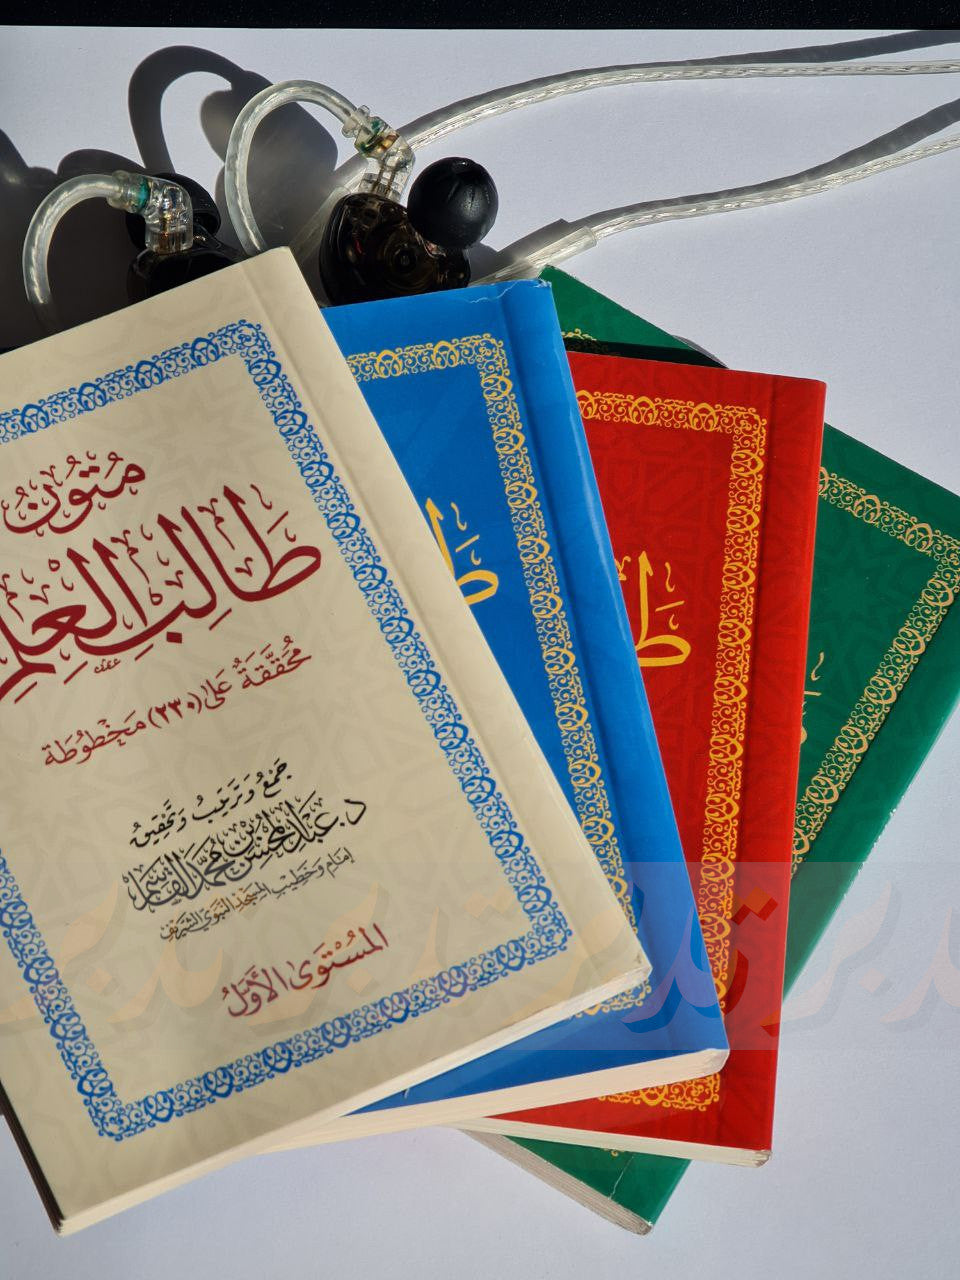 متون
طالب العلم
محققة على (٢٣٠) مخطوطة
جمع وترتيب وتحقيق
د. عبد المحسن بن محمد القاسم
إمام وخطيب المسجد النبوي الشريف
المستوى الأول
تدبر